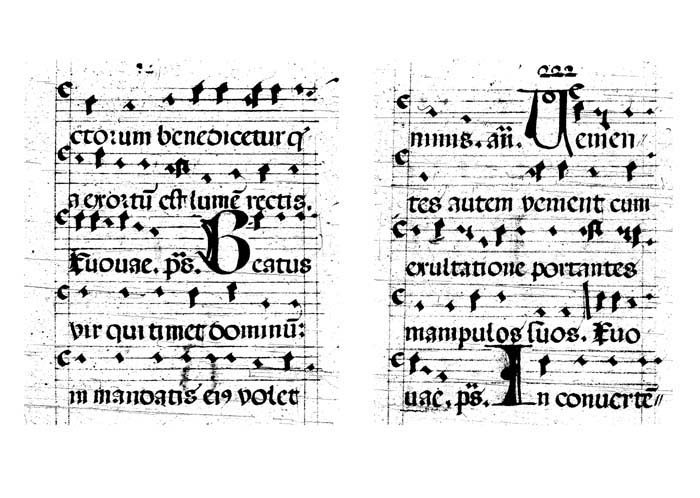 ctorum benedicetur q̃
a exortũ est lumẽ rectis.
Euouae. p̃s. Beatus
vir qui timet dominũ:
in mandatis eiꝰ volet
222
nimis. añ. Venien//
tes autem venient cum
exultatione portantes
manipulos suos. Euo
uae. p̃s. In conuertẽ//